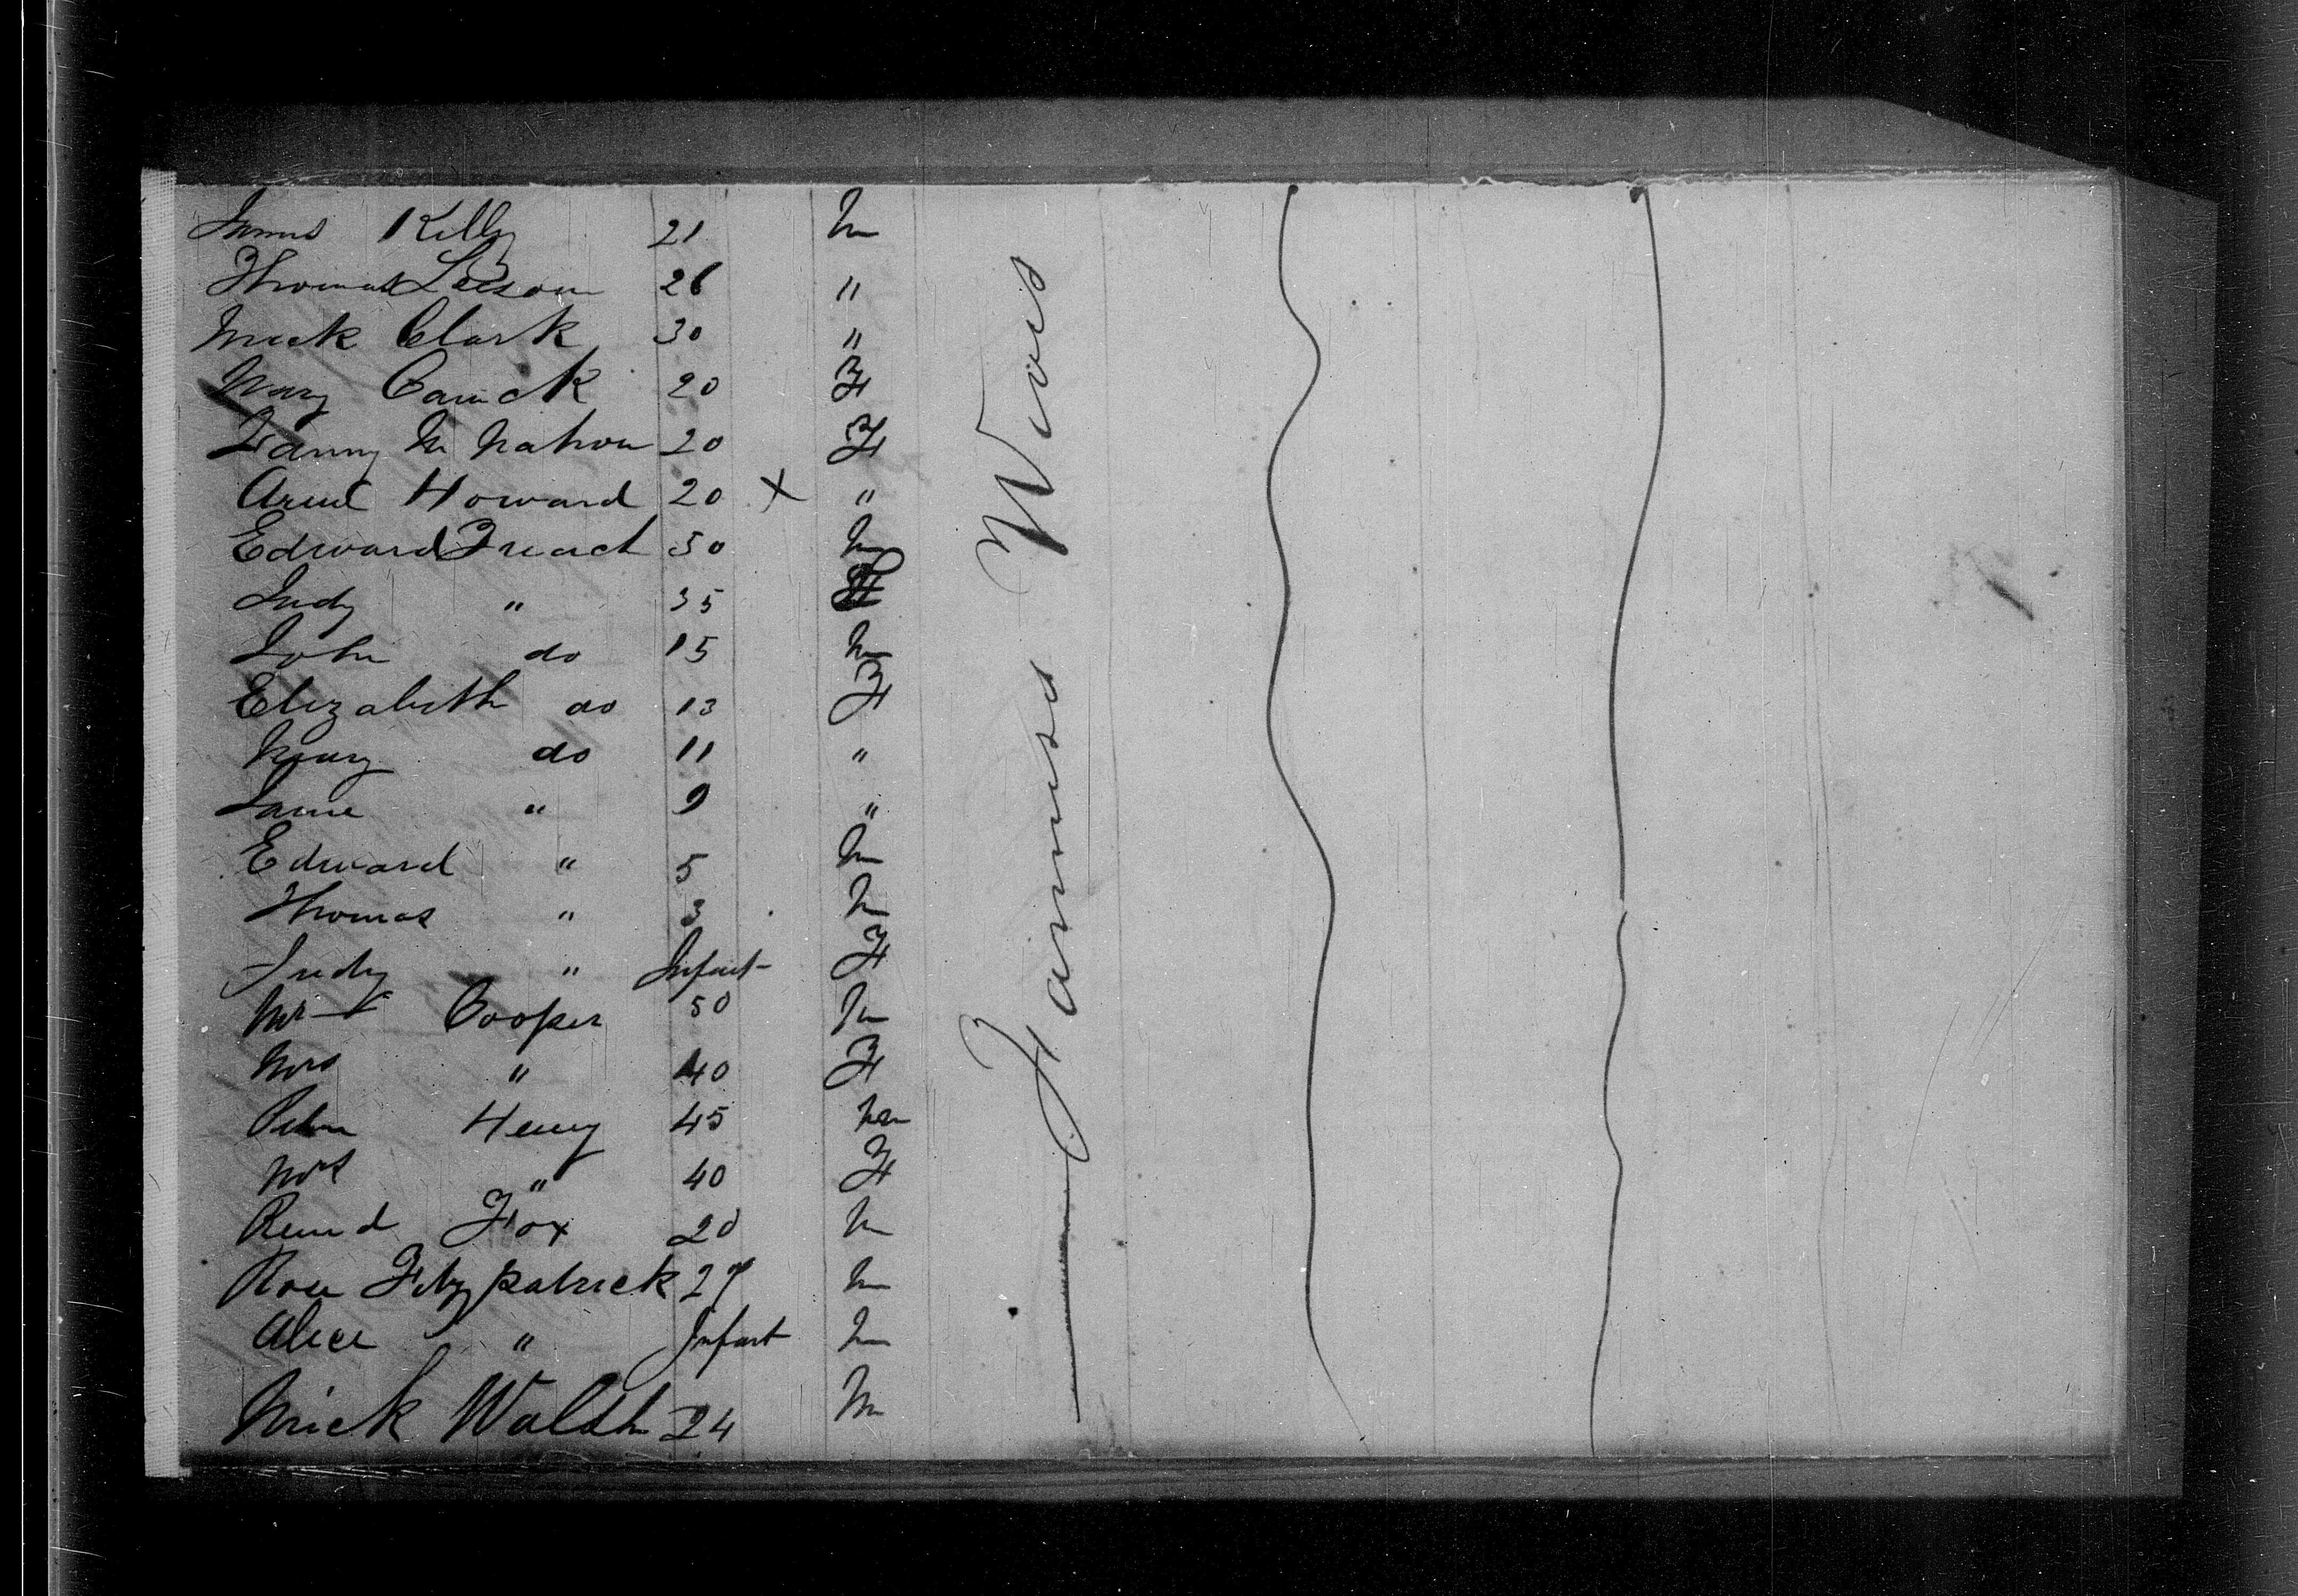 James Kelly 21 M
Thomas Leeson 26 "
Mick Clark 30 "
Mary Carrick 20 F
Fanny McMahon 20 F
Howard 20 X "
Edward French 50 M
Judy " 35 F
John do 15 M
Elizabeth do 13 F
Mary do 11 "
Jane " 9 "
Edward " 5 M
Thomas " 3 M
Judy " Infant F
Mr Cooper 50 M
Mrs " 40 F
Peter Henry 45 M
Mrs " 40 F
Fox 20 M
Rose Fitzpatrick 27 M
Alice " Infant M
Mick Walsh 24 M